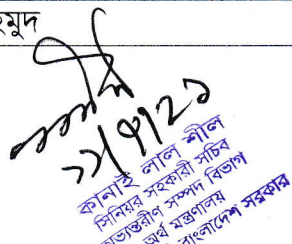 হমুদ
কানাই লাল শীল
সিনিয়র সহকারী সচিব
অভ্যন্তরীণ সম্পদ বিভাগ
অর্থ মন্ত্রণালয়
বাংলাদেশ সরকার